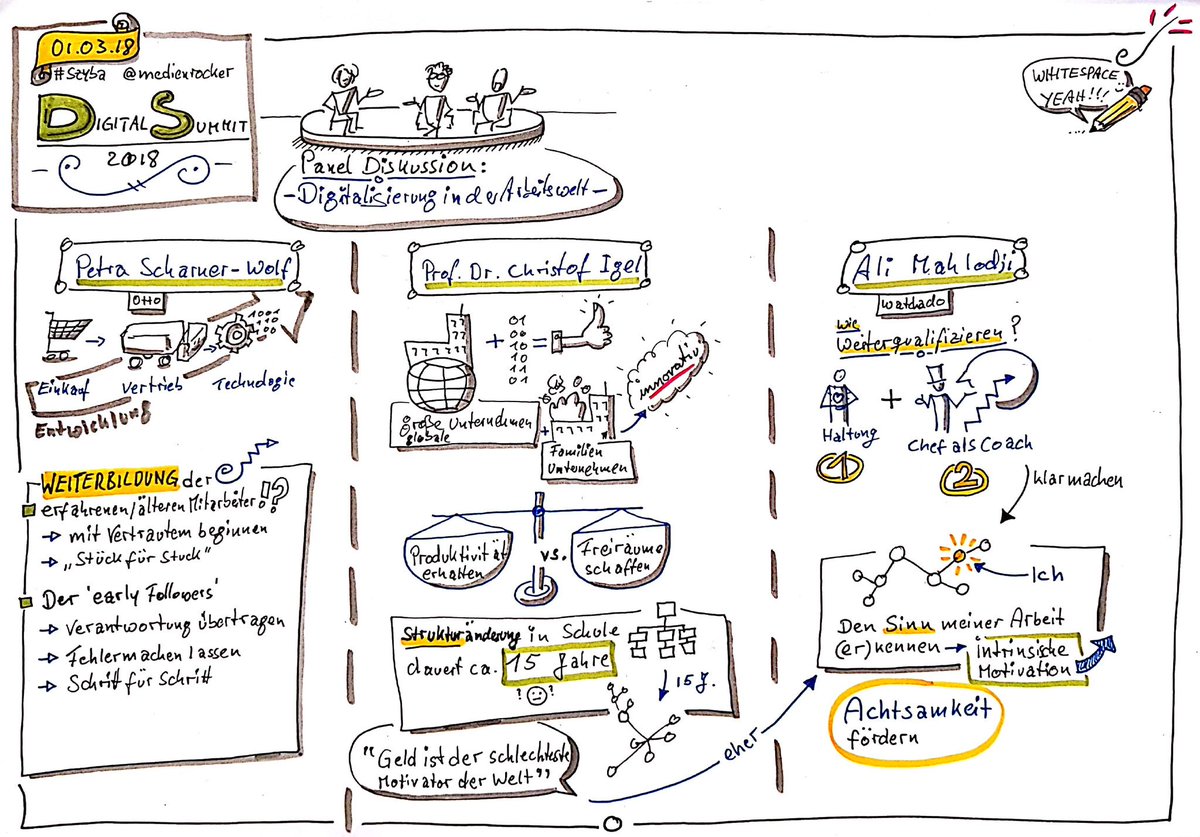 01.03.18
#Szyba @medienrocker
DIGITAL SUMMIT
2018
Panel Diskussion:
- Digitalisierung in der Arbeitswelt -
WHITESPACE
YEAH!!!
Petra Scharner-Wolf
OTTO
1001
110
100
Einkauf Vertrieb Technologie
Entwicklung
WEITERBILDUNG der
erfahrenen/älteren Mitarbeter !?
→ mit Vertrautem beginnen
→ „Stück für Stuck"
Der 'early Followers'
→ Verantwortung übertragen
→ Fehlermachen lassen
→ Schritt für Schritt
Prof. Dr. Christof Igel
+ =
01
00
10
10
11
01
innovativ
Große Unternehmen
globale
+
Familien
Unternehmen
Produktivität
erhalten
vs.
Freiräume
schaffen
Strukturänderung in Schule
dauert ca. 15 Jahre
? ?
15 J.
"Geld ist der schlechteste
Motivator der Welt"
eher
Ali Mahlodji
watchado
Wie
Weiterqualifizieren?
+
Haltung
Chef als Coach
1
2
klarmachen
Ich
Den Sinn meiner Arbeit
(er)kennen → intrinsische
Motivation
Achtsamkeit
fördern